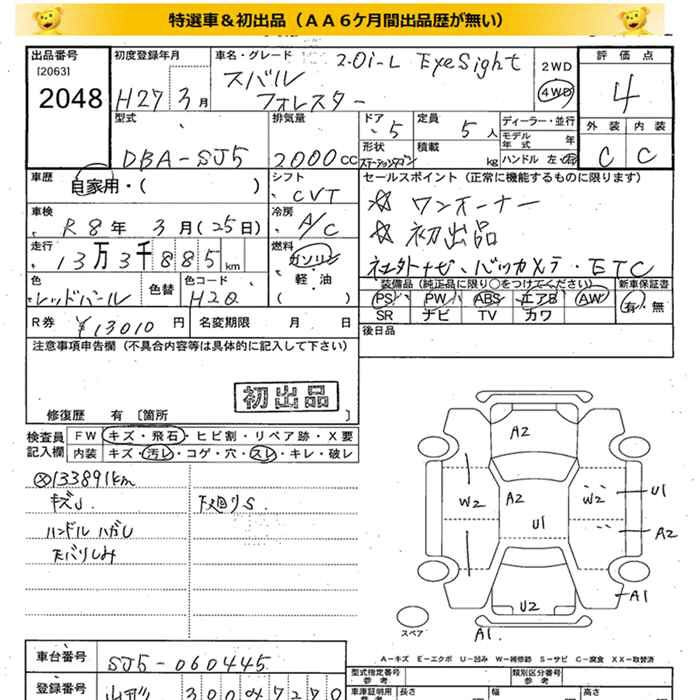 特選車＆初出品（ＡＡ６ケ月間出品歴が無い）
出品番号
[2063]
2048
初度登録年月
H27年 3月
車名・グレード
2.0i-L EyeSight
スバル
フォレスター
2WD
4WD
評価点
4
外装 内装
C C
型式
DBA-SJ5
排気量
2000CC
ドア
5
形状
ステーションワゴン
定員
5人
積載
kg
ディーラー・並行
モデル年式 年
ハンドル 左・右
車歴
自家用・( )
シフト
CVT
車検
R8年 3月(25日)
冷房
A/C
走行
13万3千885km
燃料
ガソリン
軽・油
色
レッドパール
色替
色コード
H2Q
R券 ¥13010円
名変期限 月 日
セールスポイント（正常に機能するものに限ります）
☆ ワンオーナー
☆ 初出品
社外ナビ・バックカメラ・ETC
装備品(純正品に限り○をつけてください)
新車保証書
PS PW ABS エアB AW
SR ナビ TV カワ
有・無
後日品
注意事項申告欄（不具合内容等は具体的に記入して下さい）
初出品
修復歴 有 [箇所 ]
検査員記入欄
FW キズ・飛石・ヒビ割・リペア跡・X要
内装 キズ・汚レ・コゲ・穴・スレ・キレ・破レ
133891km
キズ
下廻りS
ハンドル ハガレ
天バリしみ
A2
W2
A2
U1
W2
U1
A2
A1
U2
A1
スペア
A－キズ E－エクボ U－凹み W－補修跡 S－サビ C－腐食 XX－取替済
車台番号
SJ5-060445
登録番号
型式指定番号
参考
類別区分番号
参考
車庫証明用
参考
長さ
幅
高さ